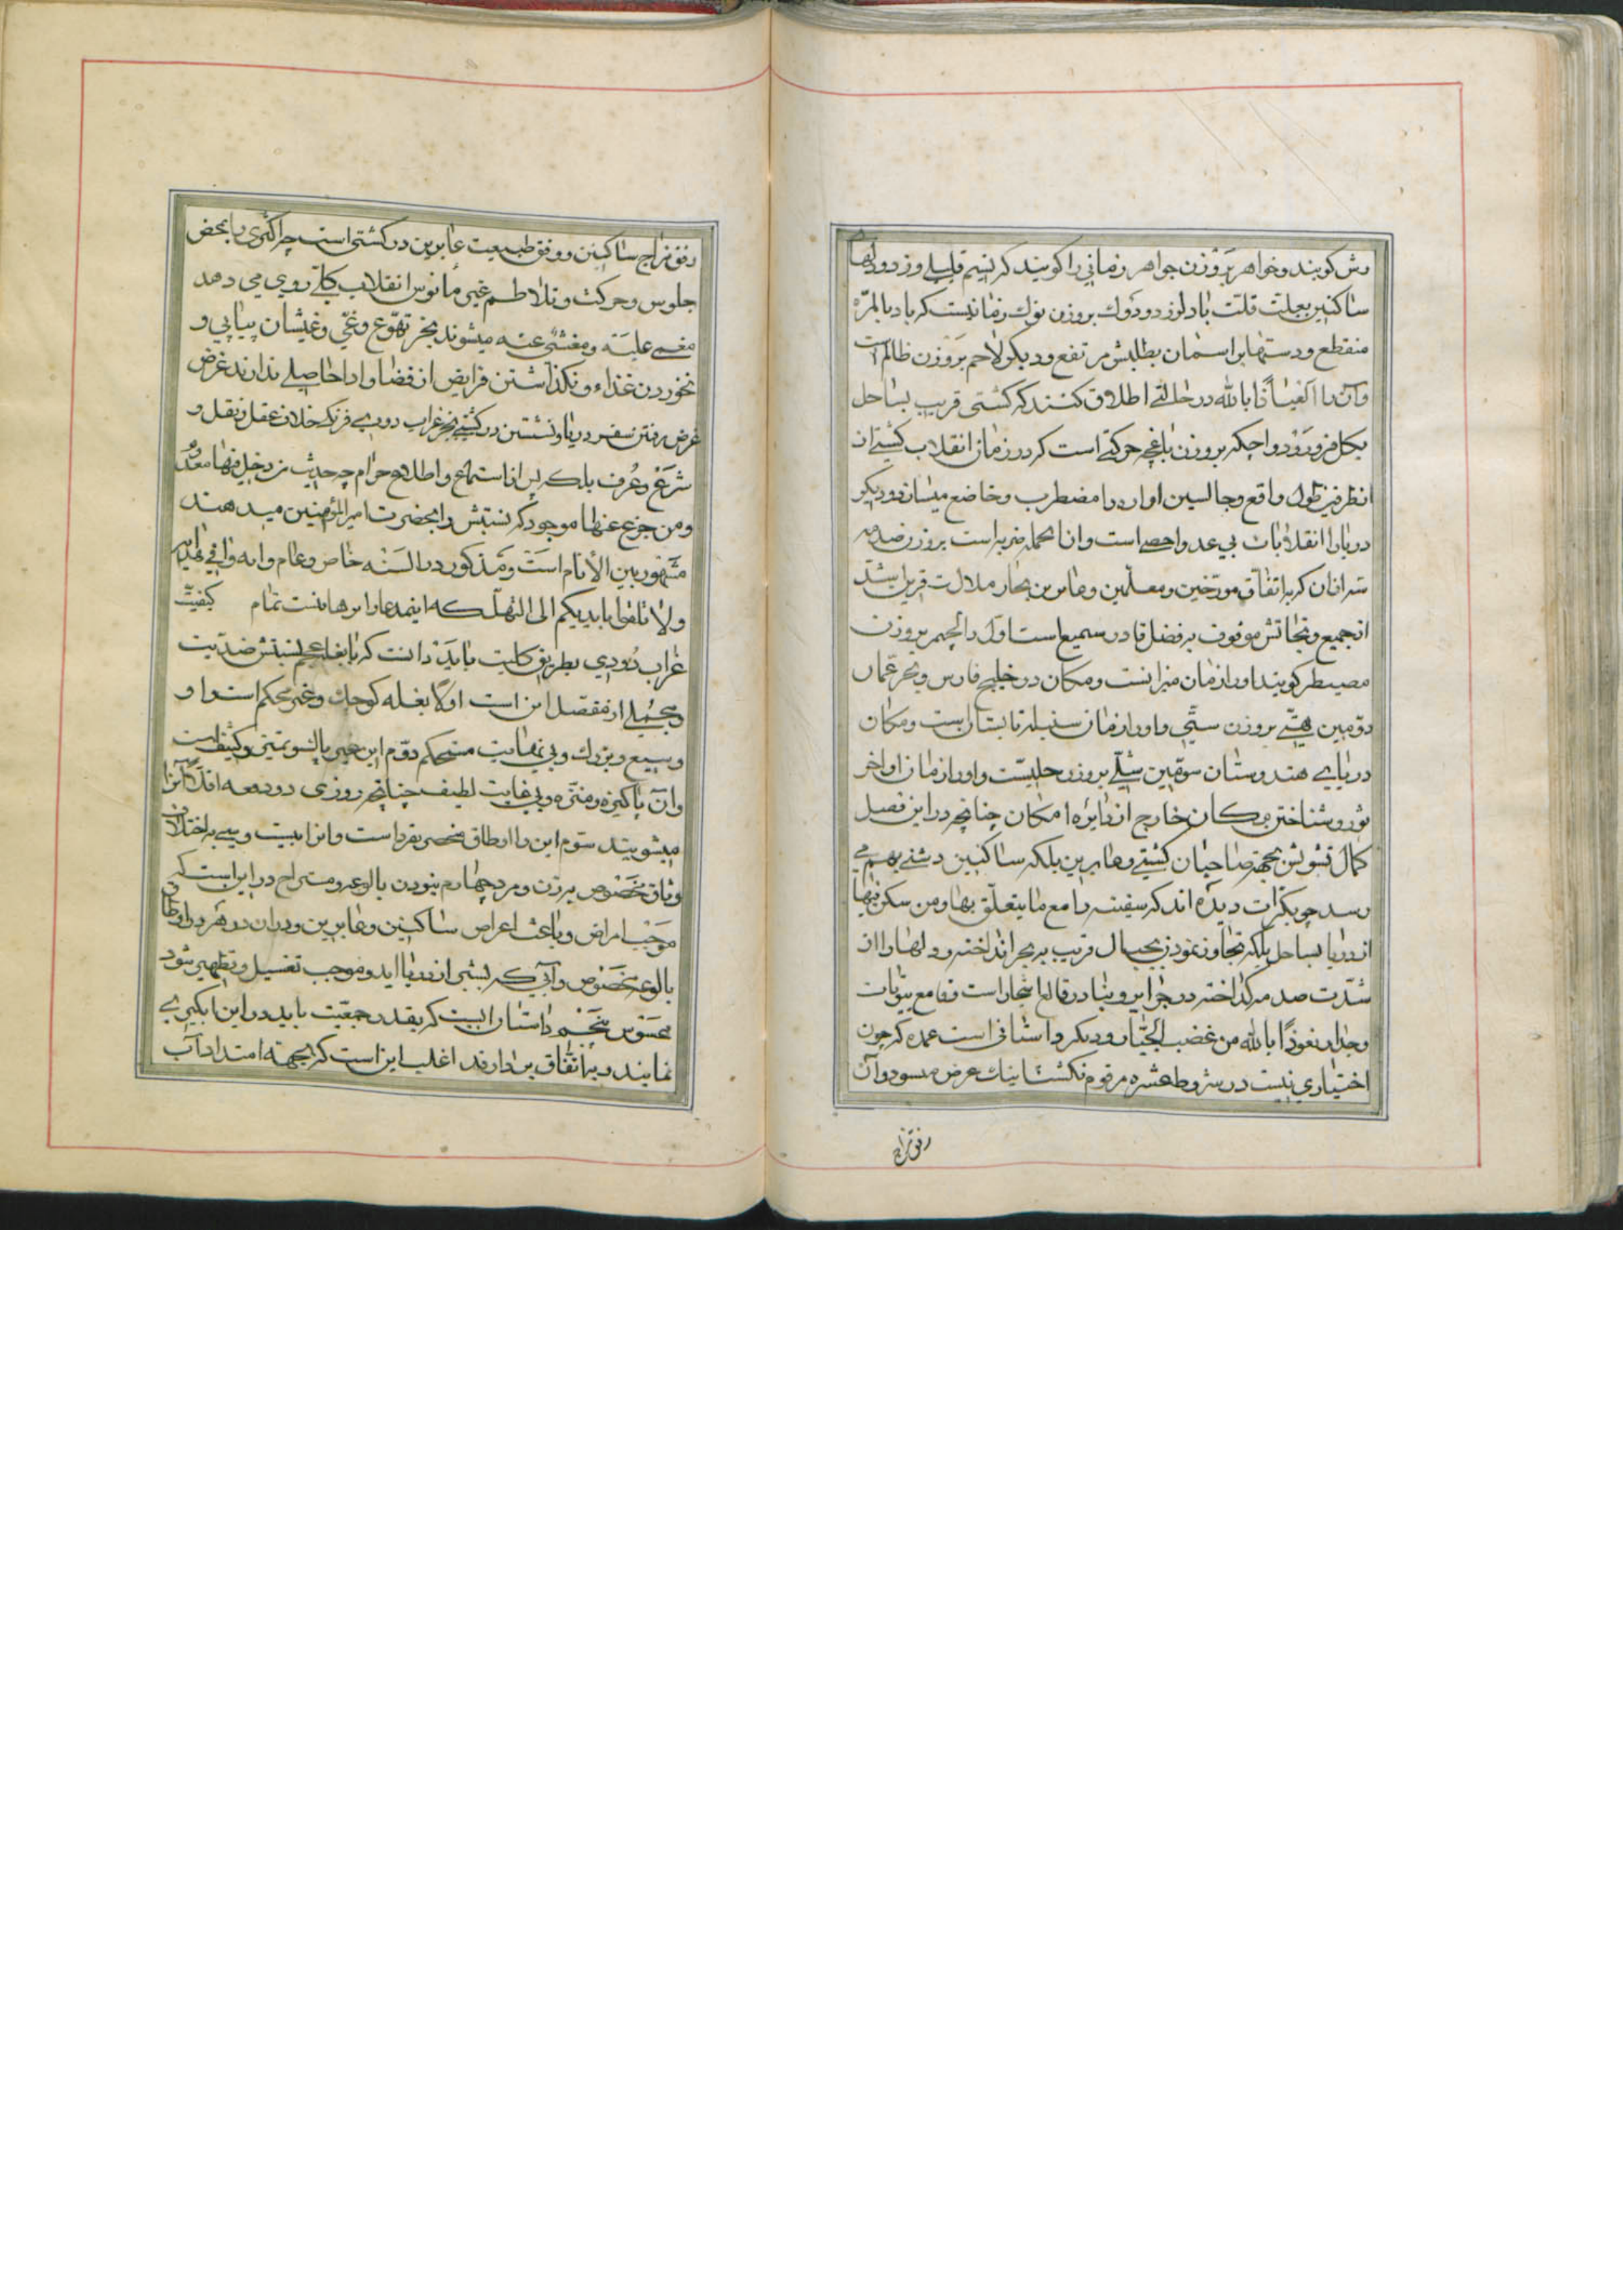 رش کویند و خواهر بروزن جواهر زمانی را کویند که نسیم قلیلی وزد و دلهای
ساکنین بعلت قلت باد لرزد و دوک بروزن نوک زمانیست که باد بالمرّه
منقطع و دستها بر اسمان بطلبش مرتفع و دیکر لاحم بروزن ظالم است
وآن را العیاذا بالله در حالتی اطلاق کنند که کشتی قریب بساحل
بکل فرو رود و اچکه بروزن باغچه حرکتی است که در زمان انقلاب کشتی از
انظرفین طول واقع و جالسین او را مضطرب و خاضع میسازد و دیکر
دریا را انقلابات بی عد و احصی است و از انجمله ضربه است بروزن ضدمه
سه از ان که باتفاق مورخین و معلّمین و عابرین بحار ملالت قرین اشدّ
از جمیع و نجاتش موقوف به فضل قادر سمیع است اوّل دالچیمر بروزن
مصیطر کویند او را زمان میزانست و مکان در خلیج فارس و بحر عمّان
دوّمین هتّی بروزن ستّی و او را زمان سنبله تابستان است و مکان
دریای هندوستان سوّمین شلّی بروزن جلیست و او را زمان اواخر
ثور و شناختن مکان خارج از دایره امکان چنانچه در این فصیل
کمال تشویش بجهة صاحبان کشتی و عابرین بلکه ساکنین دشتی بهم می
رسد چو بکرّات دیده اند که سفینه را مع ما یتعلّق بها و من سکن فیها
از دریا بساحل بلکه تجاوز نموده بجبال قریب به بحر انداخته و دلها را از
شدّت صدمه کداخته در جزایر و بنادر قالع اشجار است و قامع بیوتات
وجدار نعوذا بالله من غضب الجبّار و دیکر داستانی است عمده که چون
اختیاری نیست در شروط عشره مرقوم نکشت اینک عرض میسود و آن
رفق مزاج
رفق مزاج ساکنین و وفق طبیعت عابرین در کشتی است چرا اکثری را بمحض
جلوس و حرکت و تلاطم غیر مأنوس انقلاب کلّی روی می دهد
مغمی علیه و مغشی عنه میشوند بجز تهوّع و غیّ و غیشان پیاپی و
نخوردن غذاء و نکذاشتن فرایض از قضا و ادا حاصلی ندارند غرض
غرض رفتن سفر دریا و نشستن در کشتی بجز غراب دودی فرنک خلاف عقل و نقل و
شرع و عُرف بلکه پس از استماع و اطلاع حرام چه حدیث من دخل فیها معدوم
ومن خرج عنها موجود که نسبتش را بحضرت امیرالمؤمنین میدهند
مشهور بین الأنام است و مذکور در السنه خاص و عام و ایه وافی هدایه
ولا تلقوا بایدیکم الی التهلکه اینمدعا را برهانست تمام کیفیّت
غراب دودی بطریق کلیّت باید دانست که با بغله عجم نسبتش ضدّیت
و مجملی از مفصل این است اوّلا بغله کوچک و غیر محکم است و او
وسیع و بزرک و بی نهایت مستحکم دوّم این چین بالنسو تمتنی و کثیف است
وآن پاکیزه و منزّه و بی غایت لطیف چنانچه روزی دو دفعه اقلّا آنرا
میشویند سوّم این را اوطاق منحصر بفرد است و انرا بیست و سی به اختلاف
وثاق مخصوص بر زن و مرد چهارم نبودن بالوعه و مستراح در این است که
موجب امراض و باعث اعراض ساکنین و عابرین و در ان در هر دو اوطاق
بالوعه مخصوص و آبی که بشبی از دریا اید و موجب تغسیل و تطهیر شود
محسوس پنجم داستان ابیست که بقدر جمعیّت باید در این ابکیری
نمایند و باتفاق بر دارند اغلب این است که بجهته امتداد آب